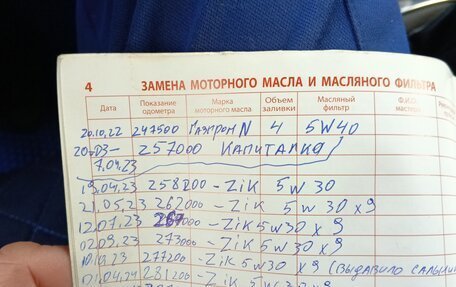 4 ЗАМЕНА МОТОРНОГО МАСЛА И МАСЛЯНОГО ФИЛЬТРА
Дата Показание одометра Марка моторного масла Объем заливки Масляный фильтр Ф.И.О.
20.10.22 247500 Газпром N 4 5W40
20.03- 257000 КАПИТАЛКА
7.04.23
19.04.23 258200 - ZiK 5W30
21.05.23 262000 - ZiK 5W30 x9
12.07.23 267000 - ZiK 5W30 x9
02.09.23 273000 - ZiK 5W30 x9
10.23 277200 - ZiK 5W30 x9 (ВЫДАВИЛО САЛЬНИК
04.24 281200 - ZiK